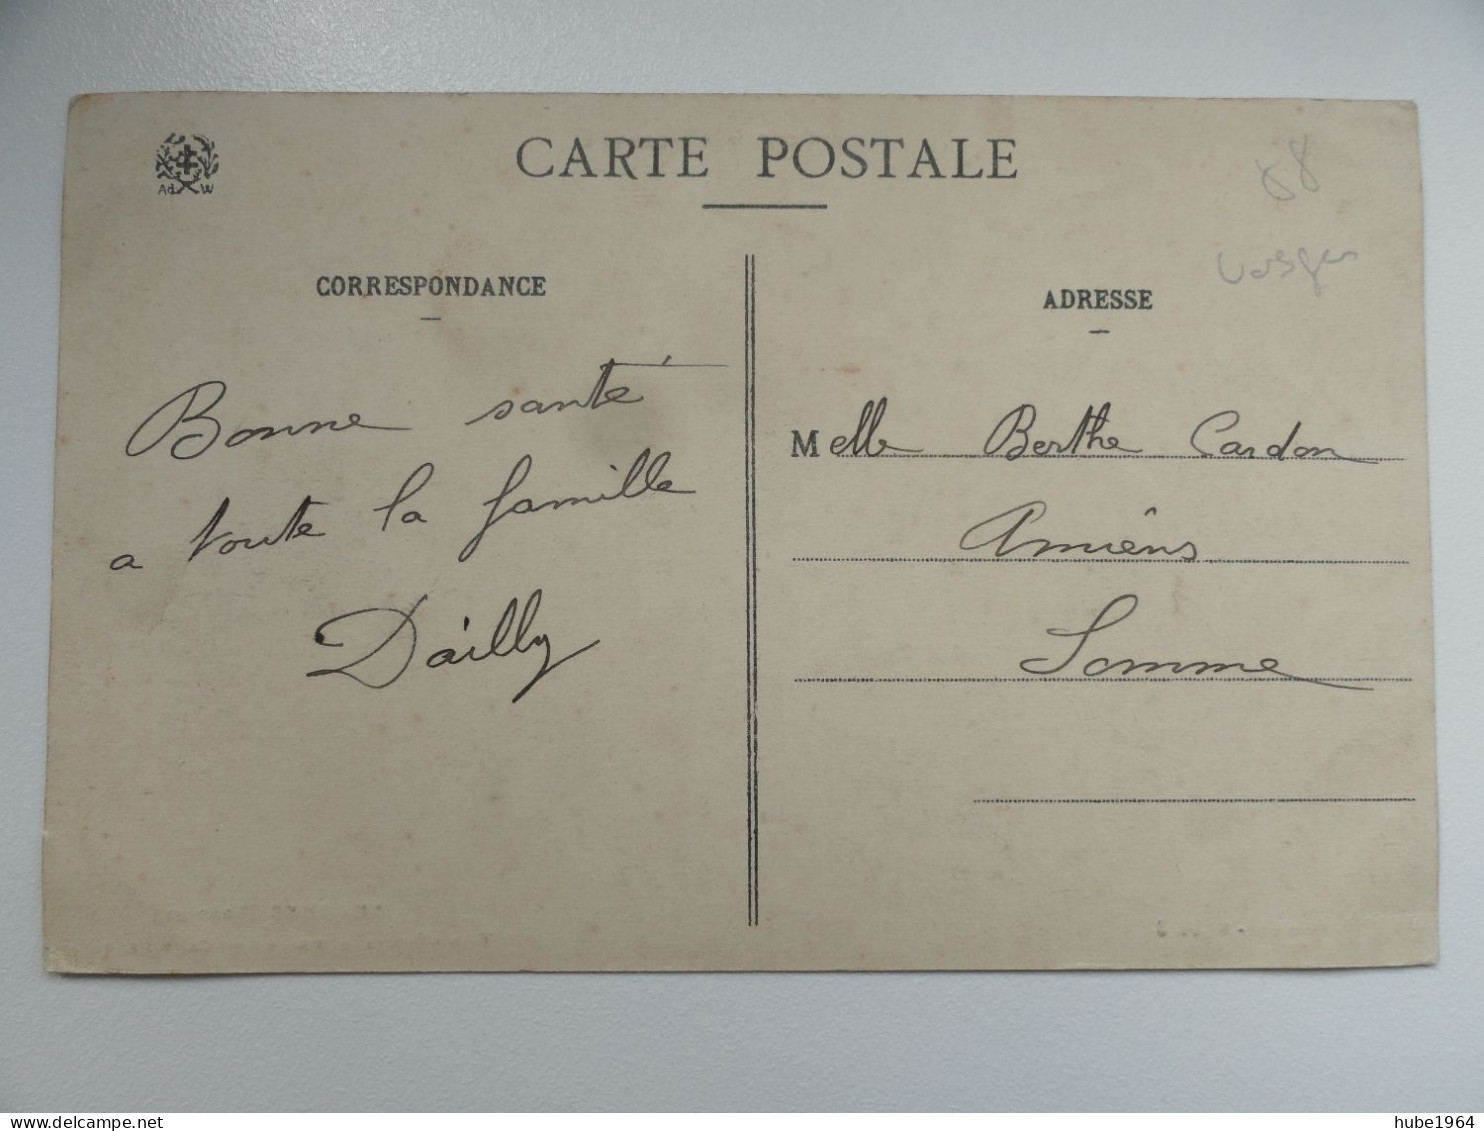 CARTE POSTALE
Ad W
88
Vosges
CORRESPONDANCE
ADRESSE
Bonne santé
a toute la famille
Dailly
Melle Berthe Cardon
Amiêns
Somme
www.delcampe.net
hube1964